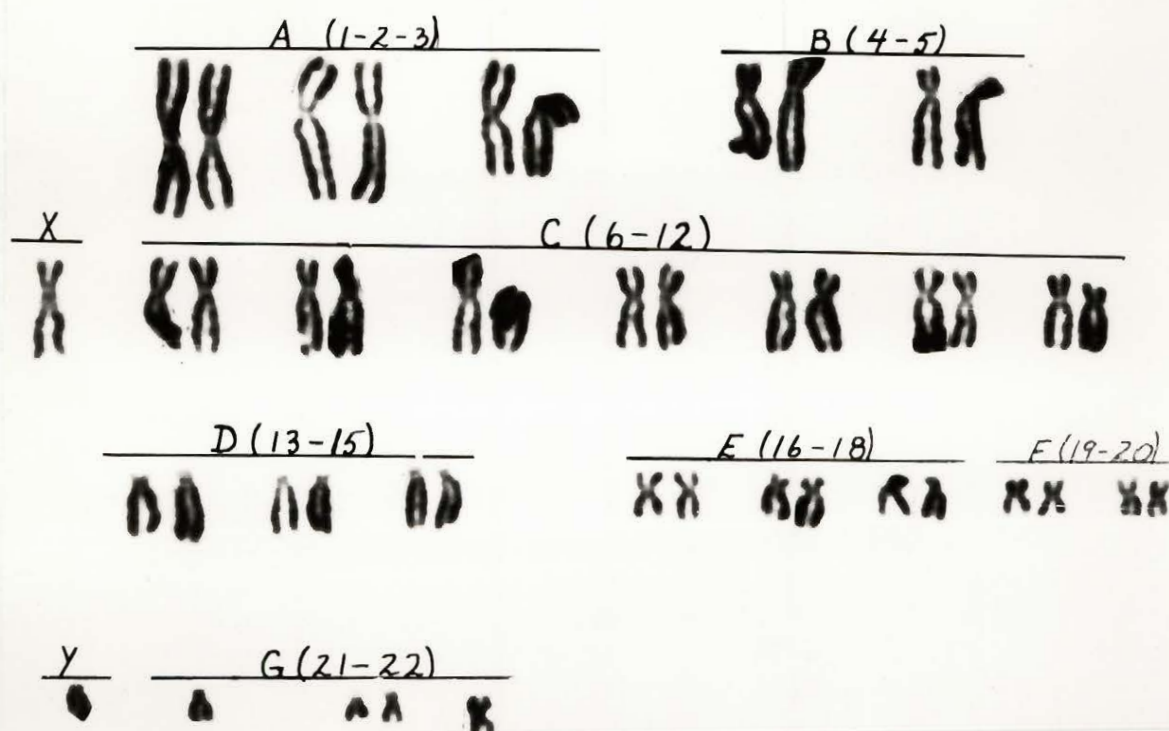 A (1-2-3)
B (4-5)
X
C (6-12)
D (13-15)
E (16-18)
F (19-20)
Y
G (21-22)